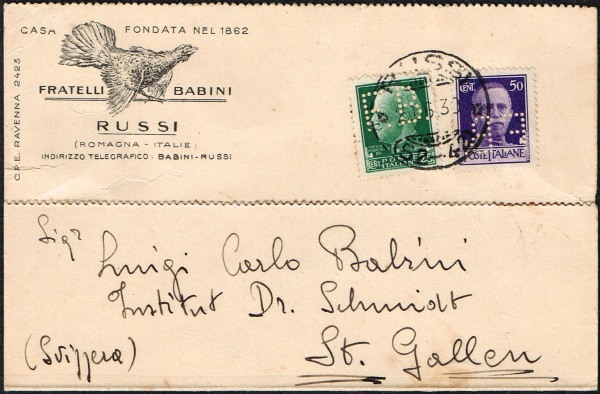 CASA FONDATA NEL 1862
C.P.E. RAVENNA 2423
FRATELLI BABINI
RUSSI
(ROMAGNA - ITALIE)
INDIRIZZO TELEGRAFICO: BABINI-RUSSI
RUSSI
CENT. 50
POSTE ITALIANE
Sigr
Luigi Carlo Babini
Institut Dr. Schmidt
(Svizzera)
St. Gallen